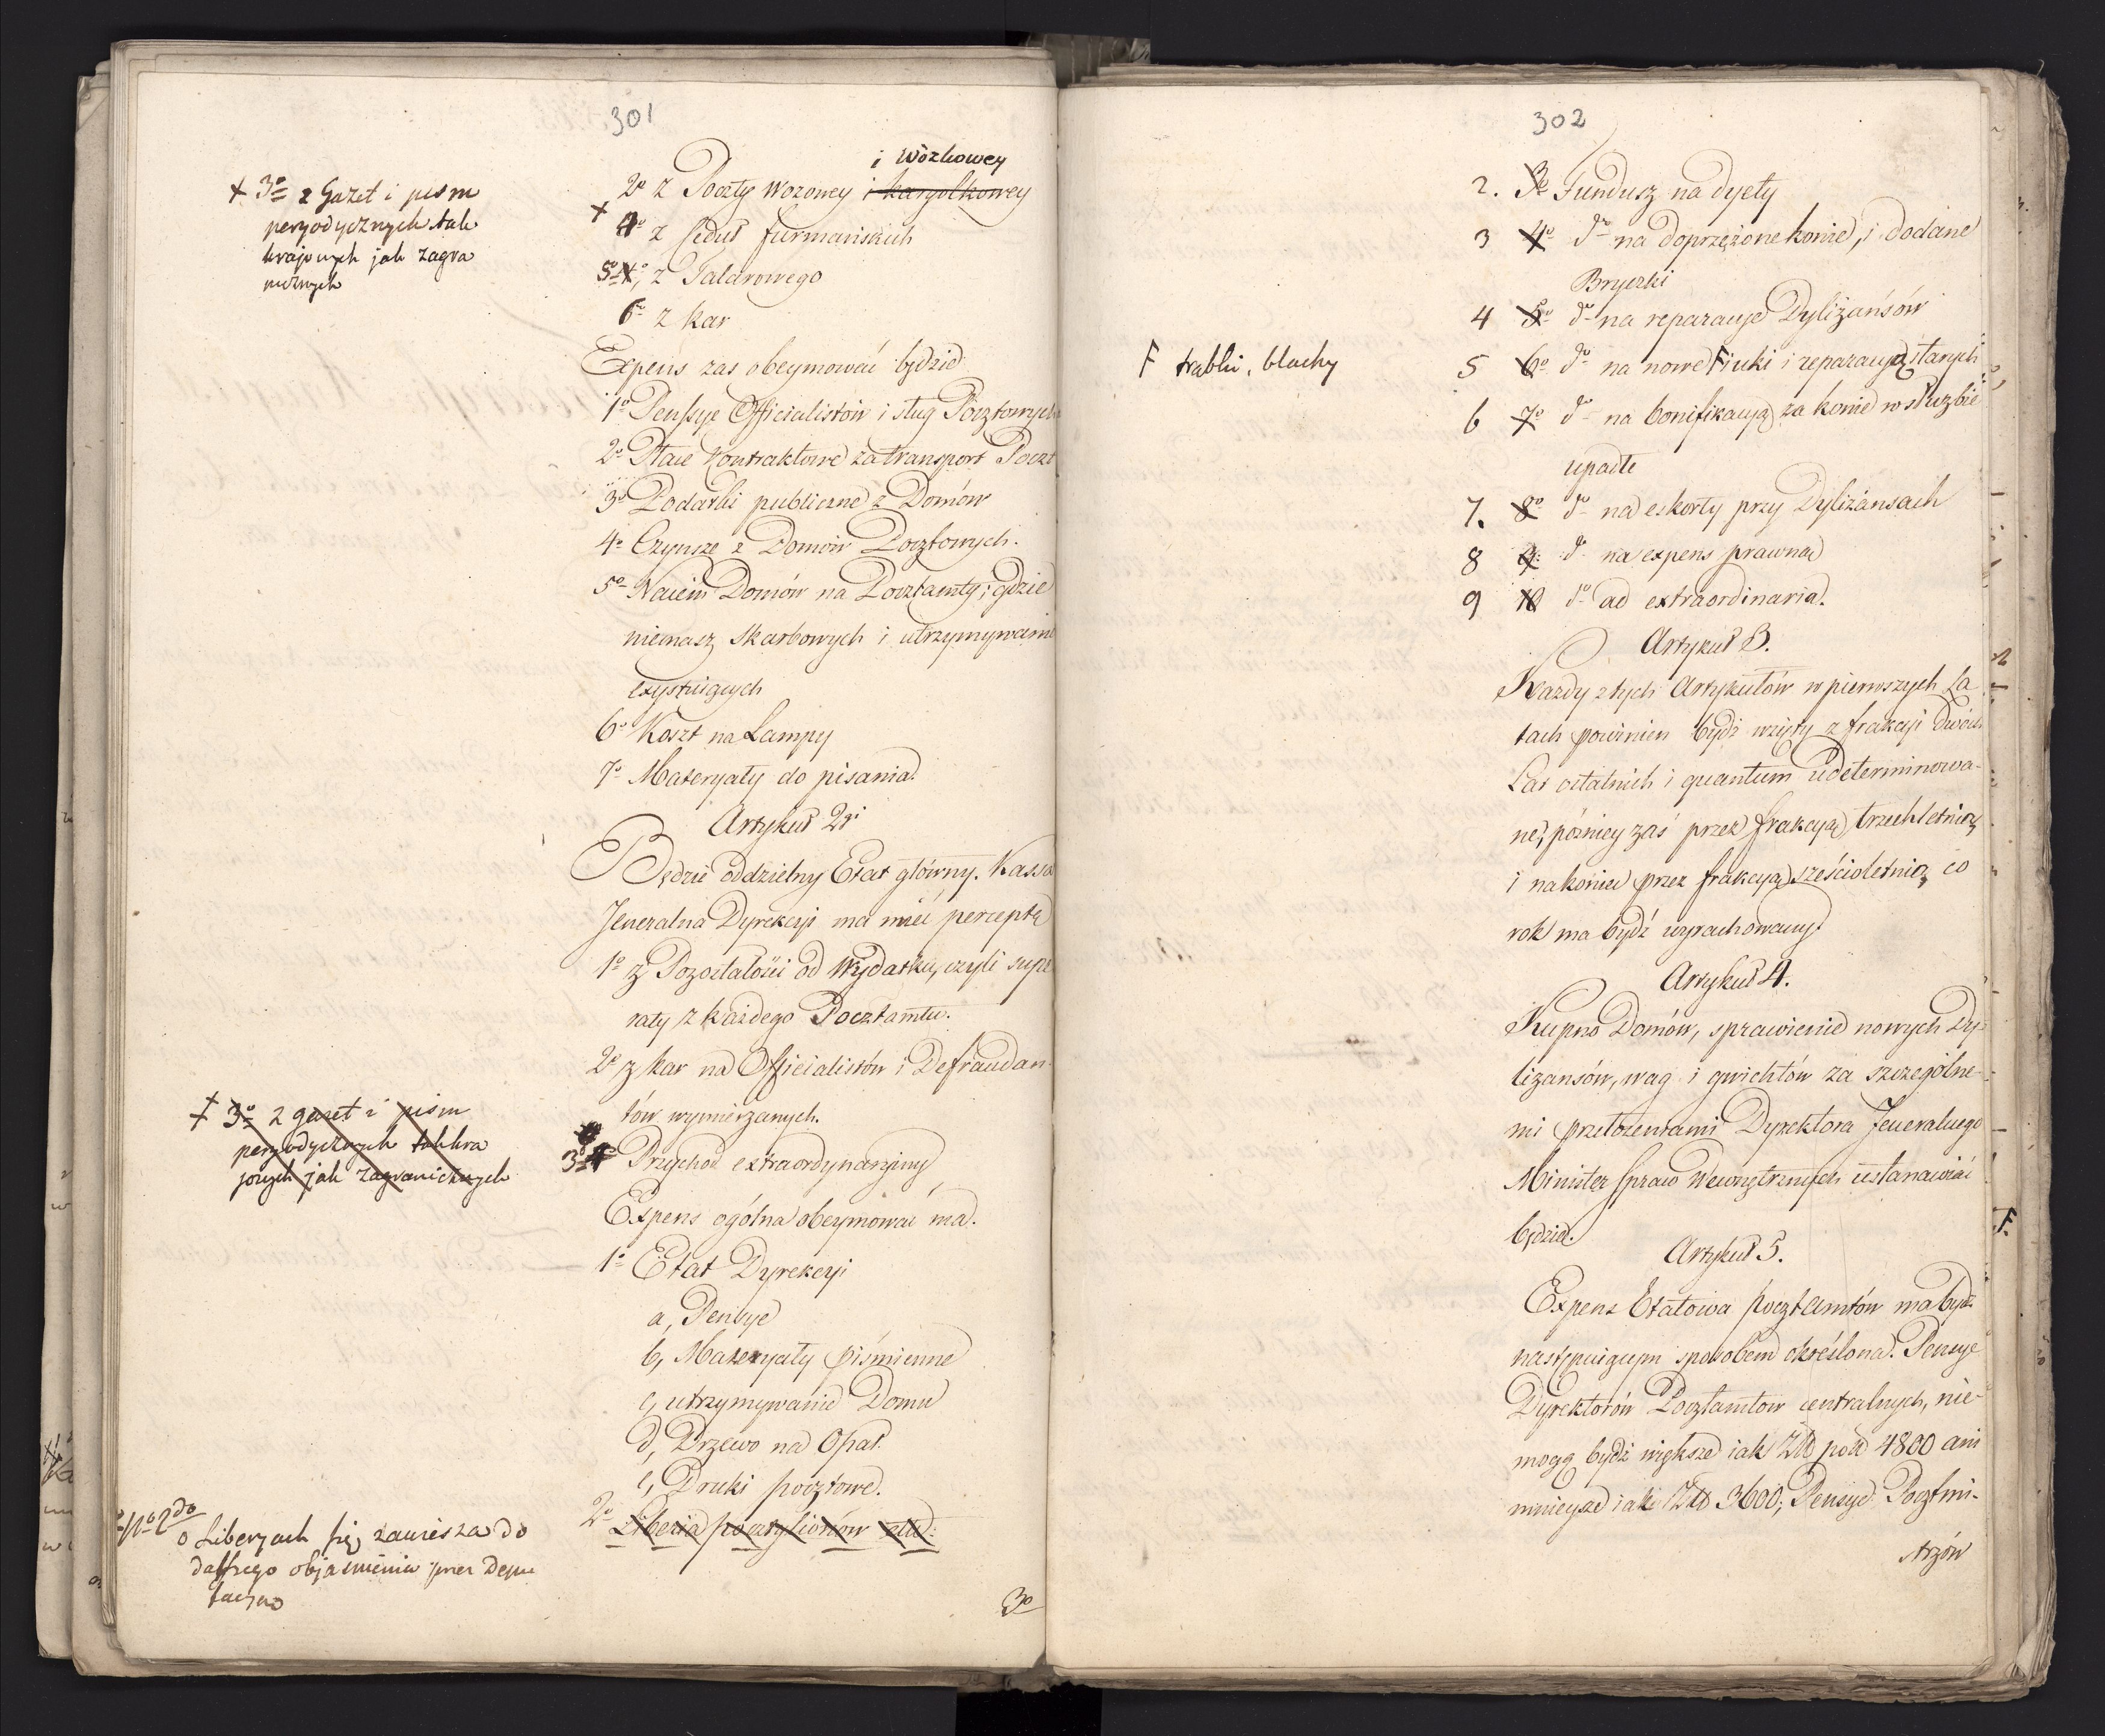 301
i Wózkowey
2º z Poczty Wozowey i karyolkowey
+ 3º z Gazet i pism
peryodycznych tak
krajowych jak zagra
nicznych
+
4º z Ceduł furmańskich
5º 4º, z Talarowego
6º z kar
Expens zas obeymować będzie
1º Penssye Officialistów i sług Pocztowych
2º Płace Kontraktowe za transport Poczt
3º Podatki publiczne z Domów
4º Czynsze z Domów Pocztowych.
5º Naiem Domów na Pocztamty, gdzie
niemasz Skarbowych i utrzymywanie
exystuiących
6º Koszt na Lampy
7º Materyały do pisania.
Artykuł 2gi
Będzie oddzielny Etat główny. Kassa
Jeneralna Dyrekcyi ma mieć perceptę
1º z Pozostałości od Wydatku, czyli supe
raty z każdego Pocztamtu.
2º z kar na Officialistów i Defraudan
tów wymierzanych.
+ 3º z gazet i pism
peryodycznych tak kra
jowych jak zagranicznych
3º 4º Przychod extraordynaryiny
Expens ogólna obeymować ma.
1º Etat Dyrekcyi
a, Pensye
b, Materyały piśmienne
c, utrzymywanie Domu
d, Drzewo na Opał.
e, Druki pocztowe.
2º Liberia pocztylionów etc:
Nº 2do
o Liberyach się zawiesza do
dalszego objasnienia przez Depu
tacyą
3º
302
2. 3º Fundusz na dyety
3 4º dº na doprzężone konie, i dodane
Bryczki
4 5º dº na reparacye Dyliżansów
F trąbki, blachy
5 6º dº na nowe F iuki i reparacyą starych
6 7º dº na bonifikacyą za konie w służbie
upadłe
7. 8º dº na eskorty przy Dyliżansach
8 9º dº na expens prawną
9 10 dº ad extraordinaria.
Artykuł 3.
Każdy z tych Artykułów w pierwszych La
tach powinien bydź wzięty z frakcyi dwóch
Lat ostatnich i quantum udeterminowa-
ne, pózniey zaś przez frakcyą trzechletnią
i nakoniec przez frakcyą sześcioletnią co
rok ma bydź wyrachowany.
Artykuł 4.
Kupno Domów, sprawienie nowych Dy-
liżansów, wag i gwichtów za szczególne-
mi przełożeniami Dyrektora Jeneralnego
Minister Spraw Wewnętrznych ustanawiać
będzie.
Artykuł 5.
Expens Etatowa pocztamtów ma bydź
następuiącym sposobem określona. Pensye
Dyrektorów Pocztamtow centralnych, nie-
mogą bydź większe iak Złł pol 4800 ani
mnieysze iak Złł 3600; Pensye Poczmi-
strzów